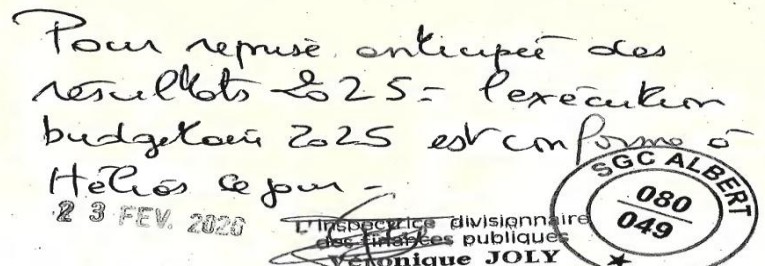 Pour reprise anticipée des
résultats 2025 = l'exécution
budgétaire 2025 est conforme à
Hélios ce jour -
23 FEV. 2026
L'Inspectrice divisionnaire
des finances publiques
Véronique JOLY
SGC ALBERT
080
049